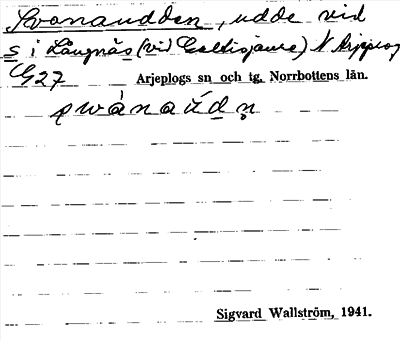 Svanaudden, udde vid
S i Långnäs (vid Galtisjaure) N Arjeplog
Arjeplogs sn och tg. Norrbottens län.
Sigvard Wallström, 1941.